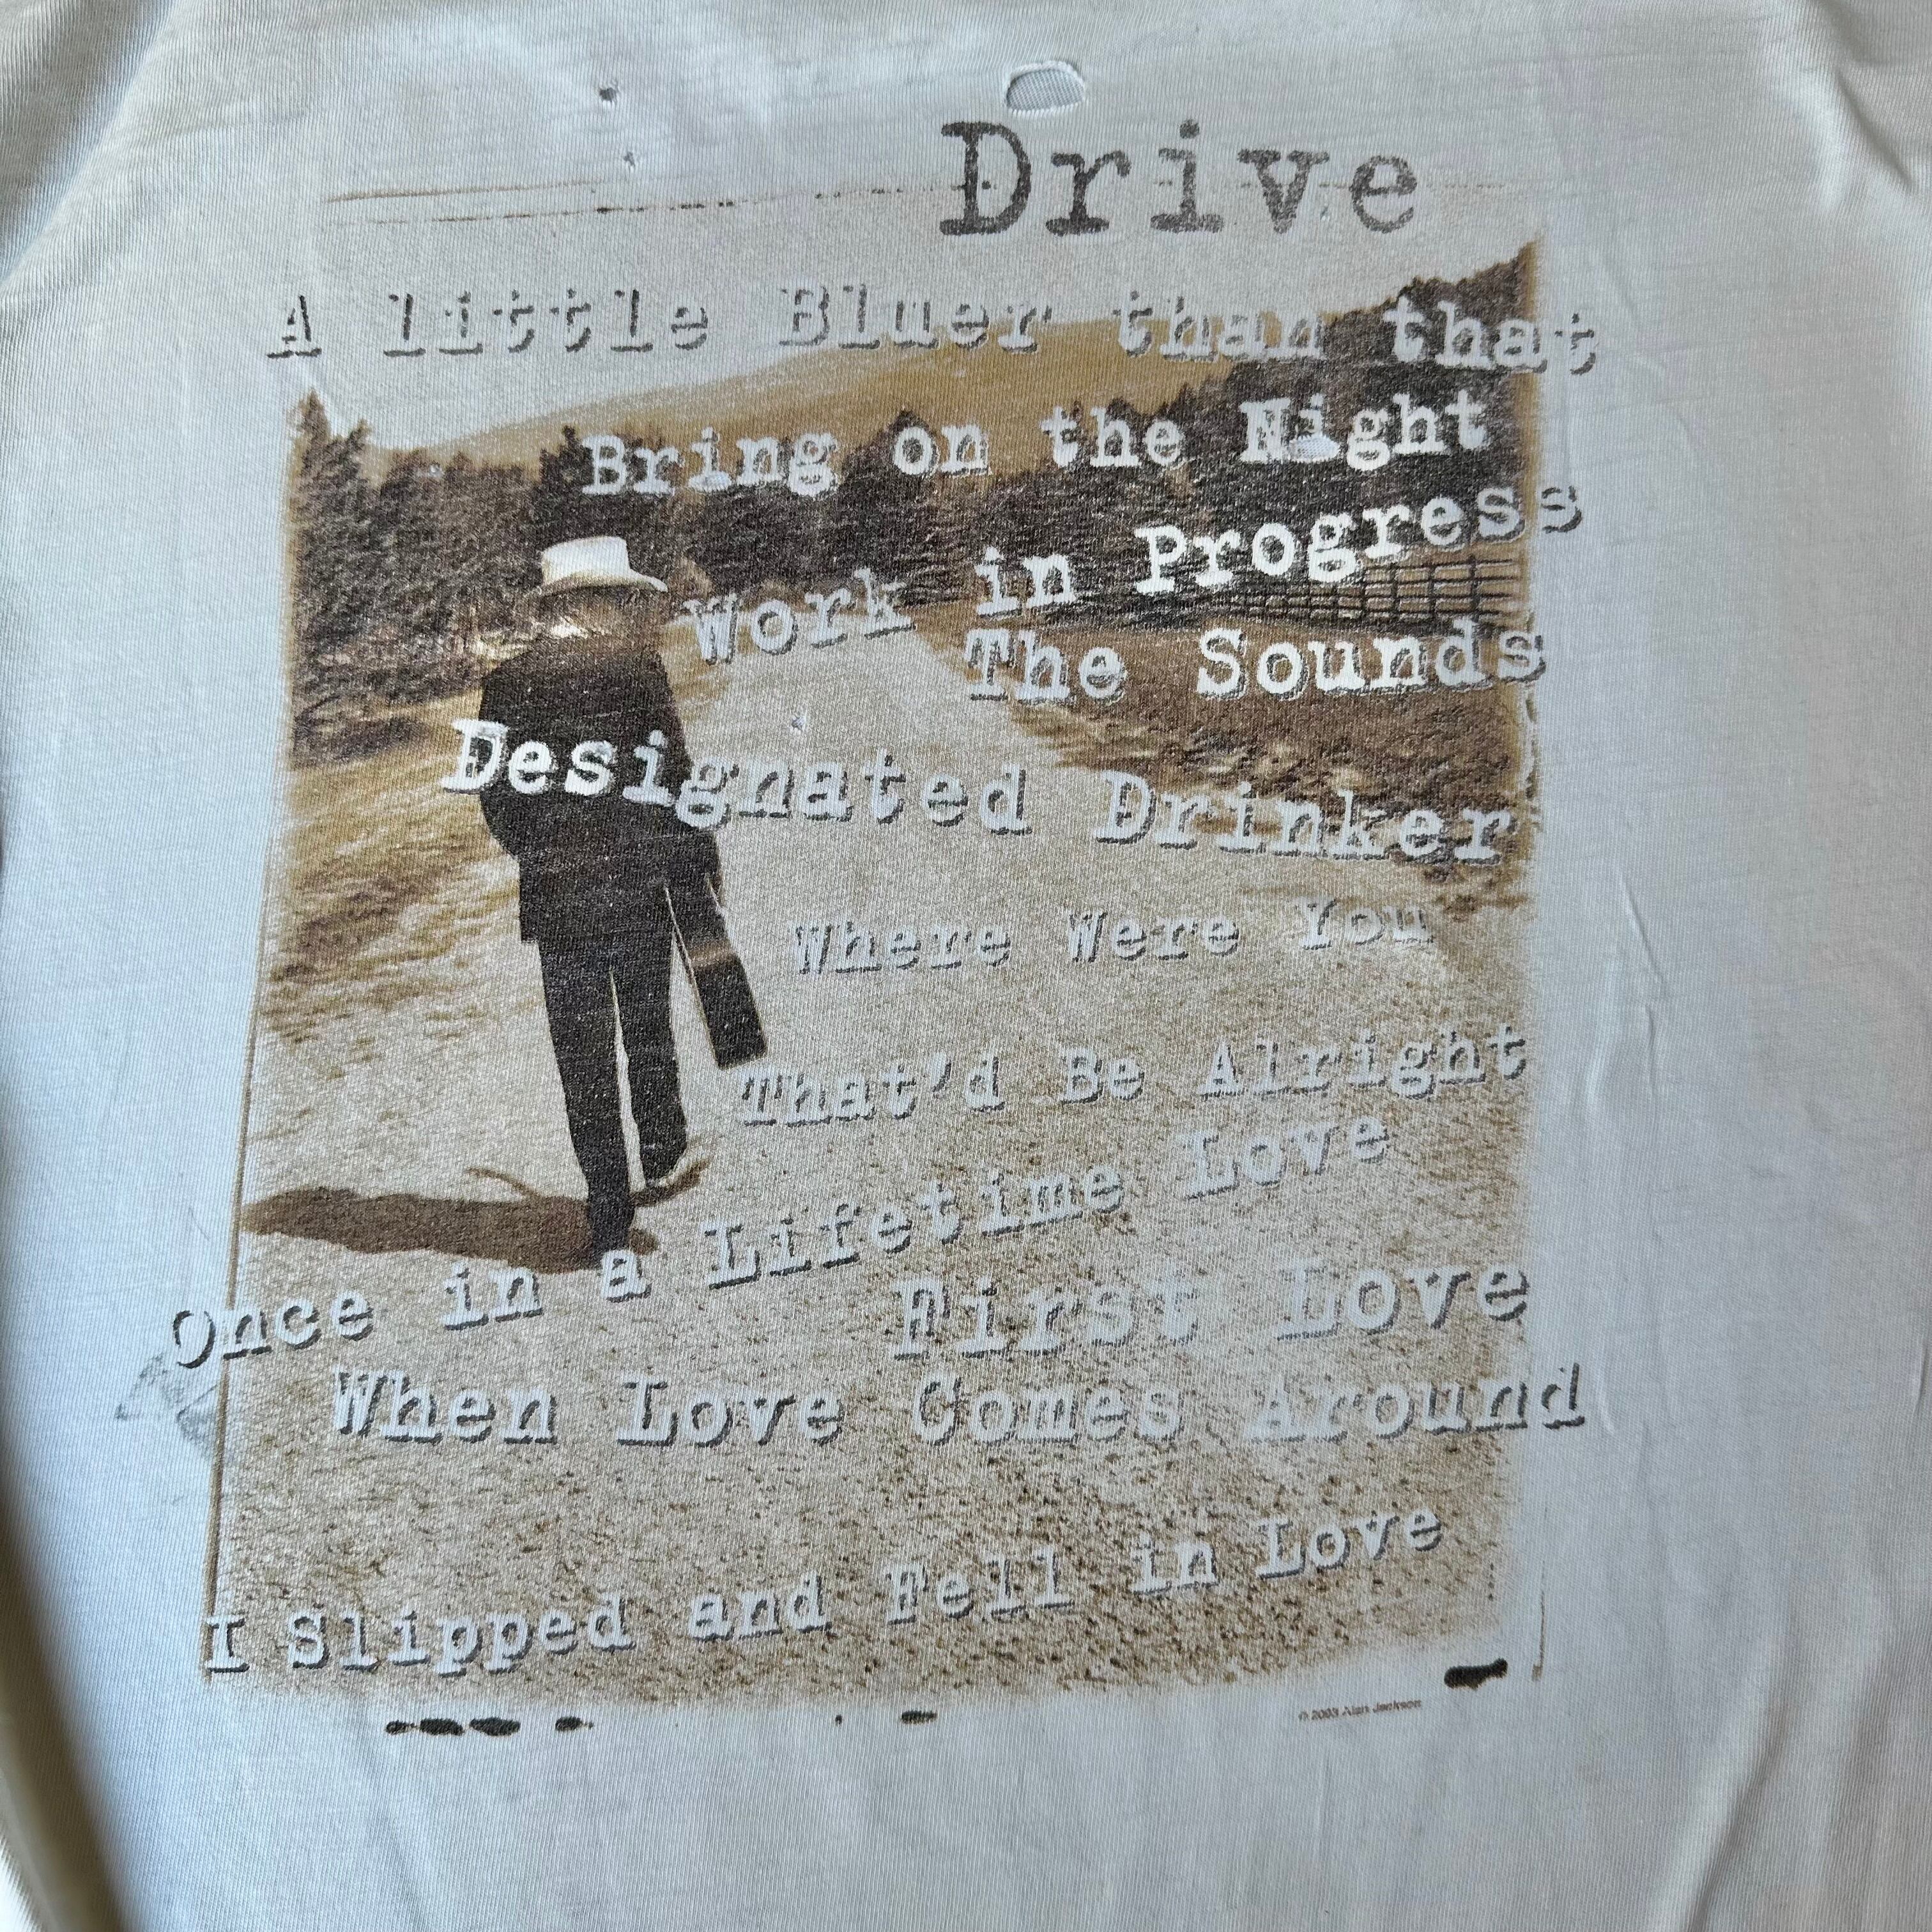 Drive
A little Bluer than that
Bring on the Night
Work in Progress
The Sounds
Designated Drinker
Where Were You
That'd Be Alright
Once in a Lifetime Love
First Love
When Love Comes Around
I Slipped and Fell in Love
© 2003 Alan Jackson